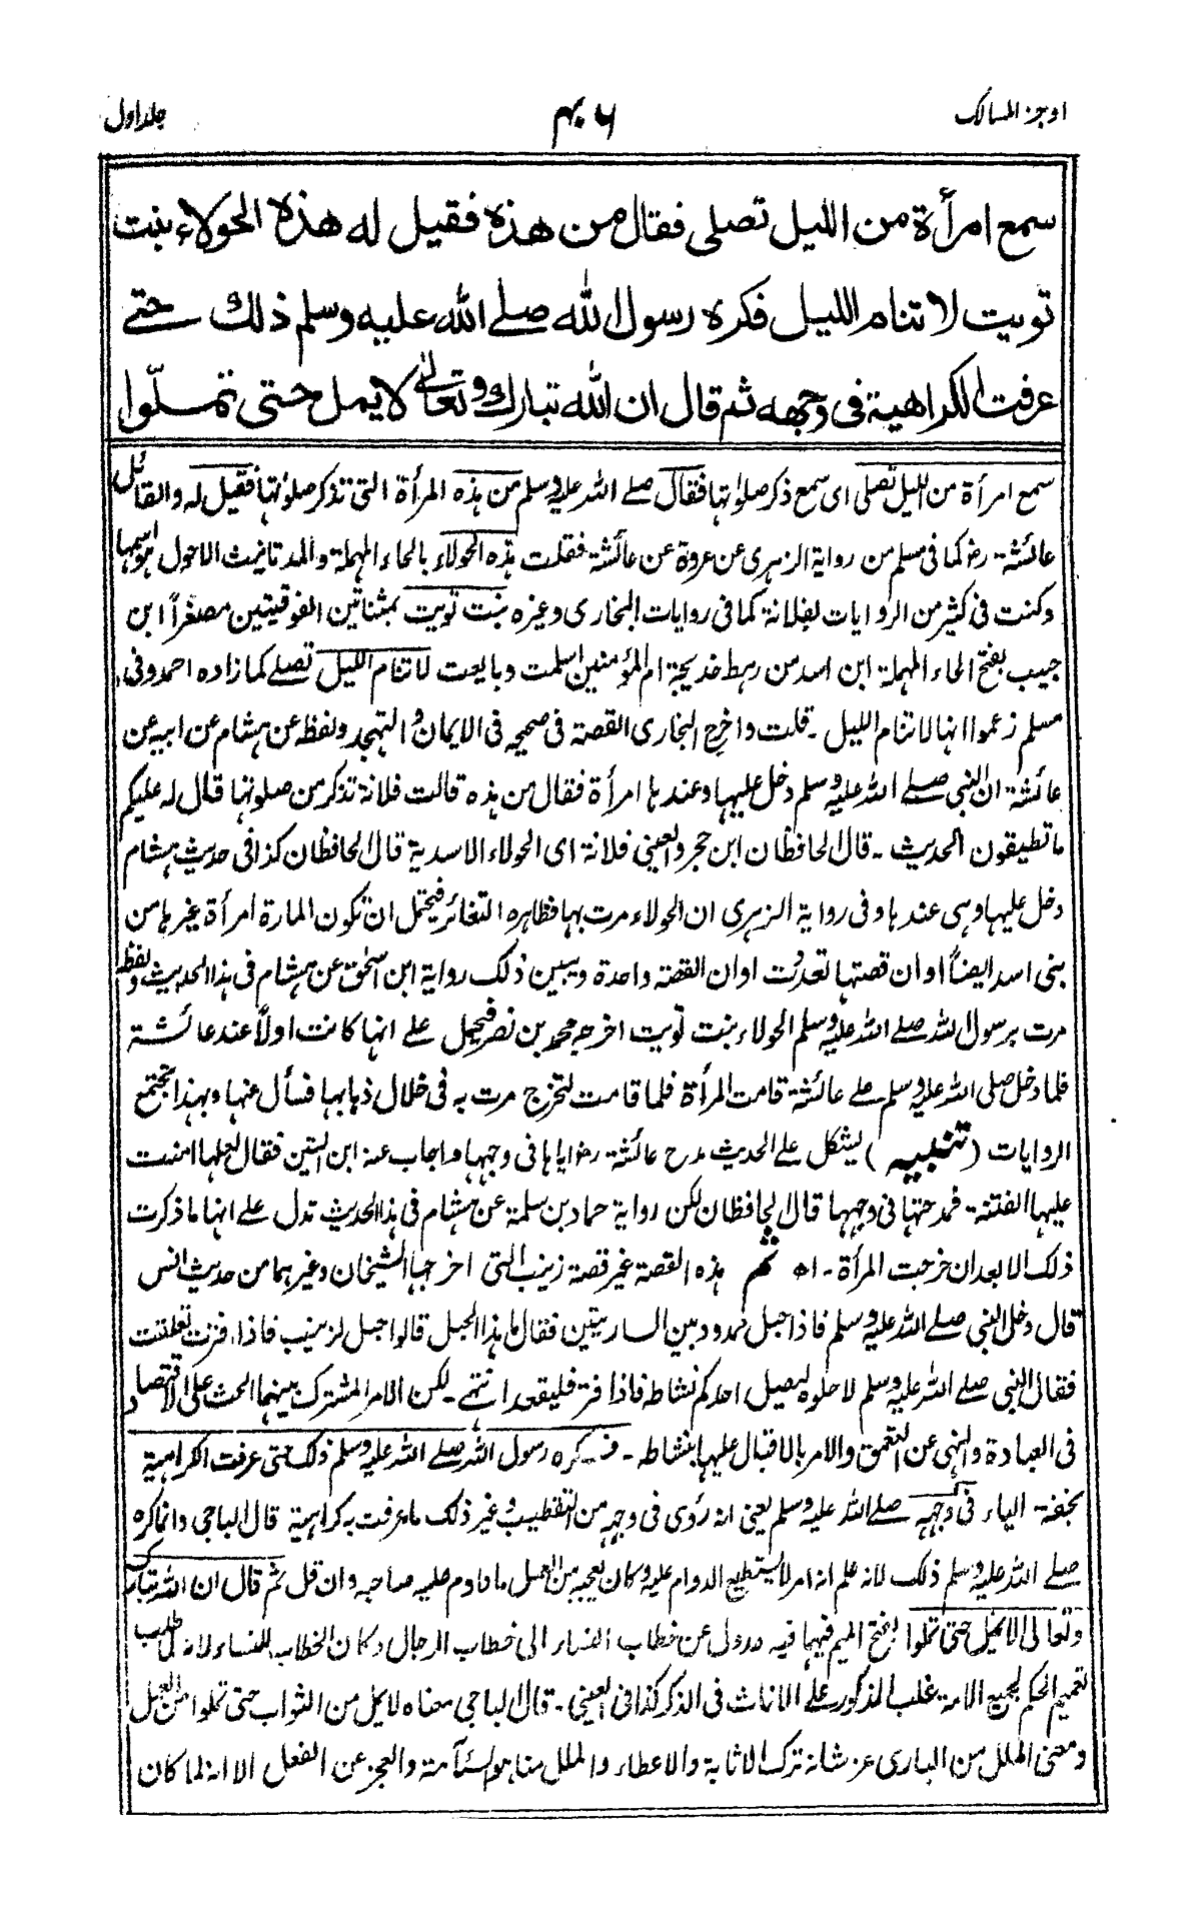 اوجز المسالك
۴۰۶
جلد اول
سمع امرأة من الليل تصلى فقال من هذه فقيل له هذه الحولاء بنت
تويت لا تنام الليل فكره رسول الله صلے الله عليه وسلم ذلك حتے
عرفت الكراهية فى وجهه ثم قال ان الله تبارك وتعالىٰ لا يمل حتى تملّوا
سمع امرأة من الليل تصلى اى سمع ذكر صلوٰتها فقال صلے الله عليه وسلم من هذه المرأة التى تذكر صلوٰتها فقيل له والقائل
عائشة رضؓ كما فى مسلم من رواية الزهرى عن عروة عن عائشة فقلت هذه الحولاء بالحاء المهملة والمد تانيث الاحول هو اسمها
وكنت فى كثير من الروايات بفلانة كما فى روايات البخارى وغيره بنت تويت بمثناتين الفوقيتين مصغراً ابن
حبيب بفتح الحاء المهملة ابن اسد من رهط خديجة ام المؤمنين اسلمت وبايعت لا تنام الليل تصلے كما زاده احمد وفى
مسلم زعموا انها لا تنام الليل ـ قلت واخرج البخارى القصة فى صحيحه فى الايمان والتهجد ولفظ عن هشام عن ابيه عن
عائشة ان النبى صلے الله عليه وسلم دخل عليها وعندها امرأة فقال من هذه قالت فلانة تذكر من صلوتها قال له عليكم
ما تطيقون الحديث ـ قال الحافظان ابن حجر والعينى فلانة اى الحولاء الاسدية قال الحافظان كذا فى حديث هشام
دخل عليها وهى عندها وفى رواية الزهرى ان الحولاء مرت بها فظاهره التغائر فيحتمل ان تكون المارة امرأة غيرها من
بنى اسد ايضاً او ان قصتها تعددت او ان القصة واحدة ويبين ذلك رواية ابن سحٰق عن هشام فى هذا الحديث ولفظه
مرت برسول الله صلے الله عليه وسلم الحولاء بنت تويت اخرجه محمد بن نصر فيحمل علے انها كانت اولاً عند عائشة
فلما دخل صلى الله عليه وسلم علے عائشة قامت المرأة فلما قامت لتخرج مرت به فى خلال ذهابها فسأل عنها وبهذا تجتمع
الروايات (تنبيه) يشكل علے الحديث مدح عائشة رضؓ اياها فى وجهها واجاب عنه ابن التين فقال لعلها امنت
عليها الفتنة ـ فمدحتها فى وجهها قال الحافظان لكن رواية حماد بن سلمة عن هشام فى هذا الحديث تدل علے انها ما ذكرت
ذلك الا بعد ان خرجت المرأة ـ اھ ثم هذه القصة غير قصة زينب التى اخرجها الشيخان وغيرهما من حديث انس
قال دخل النبى صلے الله عليه وسلم فاذا حبل ممدود بين الساريتين فقال ما هذا الحبل قالوا حبل لزينب فاذا فترت تعلقت
فقال النبى صلے الله عليه وسلم لا حلوه ليصل احدكم نشاطه فاذا فتر فليقعد انتهے ـ لكن الامر المشترك بينهما الحث على الاقتصاد
فى العبادة والنهى عن التعمق والامر بالاقبال عليها بنشاط ـ فكره رسول الله صلے الله عليه وسلم ذلك حتى عرفت الكراهية
بخفة الياء فى وجهه صلے الله عليه وسلم يعنى انه رؤى فى وجهه من التقطيب وغير ذلك ما عرفت به كراهية قال الباجى وانما كره
صلے الله عليه وسلم ذلك لانه علم انه امر لا يستطيع الدوام عليه وكان يعجبه من العمل ما داوم عليه صاحبه وان قل ثم قال ان الله تبارك
وتعالى لا يمل حتى تملوا بفتح الميم فيهما فيه عدول عن خطاب النساء الى خطاب الرجال وكان الخطاب للنساء لانه لما طلب
تعميم الحكم لجميع الامة غلب الذكور علے الاناث فى الذكر كذا فى العينى ـ قال الباجى معناه لا يمل من الثواب حتى تملوا من العمل
ومعنى الملل من البارى عز شانه ترك الاثابة والاعطاء والملل منا هو السآمة والعجز عن الفعل الا انه لما كان